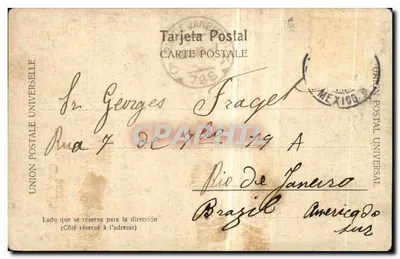 Tarjeta Postal
CARTE POSTALE
UNION POSTALE UNIVERSELLE
UNION POSTAL UNIVERSAL
MEXICO
DE JANEIRO
Sr. Georges Fraget
Rua 7 de 7bro 79 A
CPARAMA
Rio de Janeiro
Brazil America do
Sur
Lado que se reserva para la dirección
(Côté réservé à l'adresse)